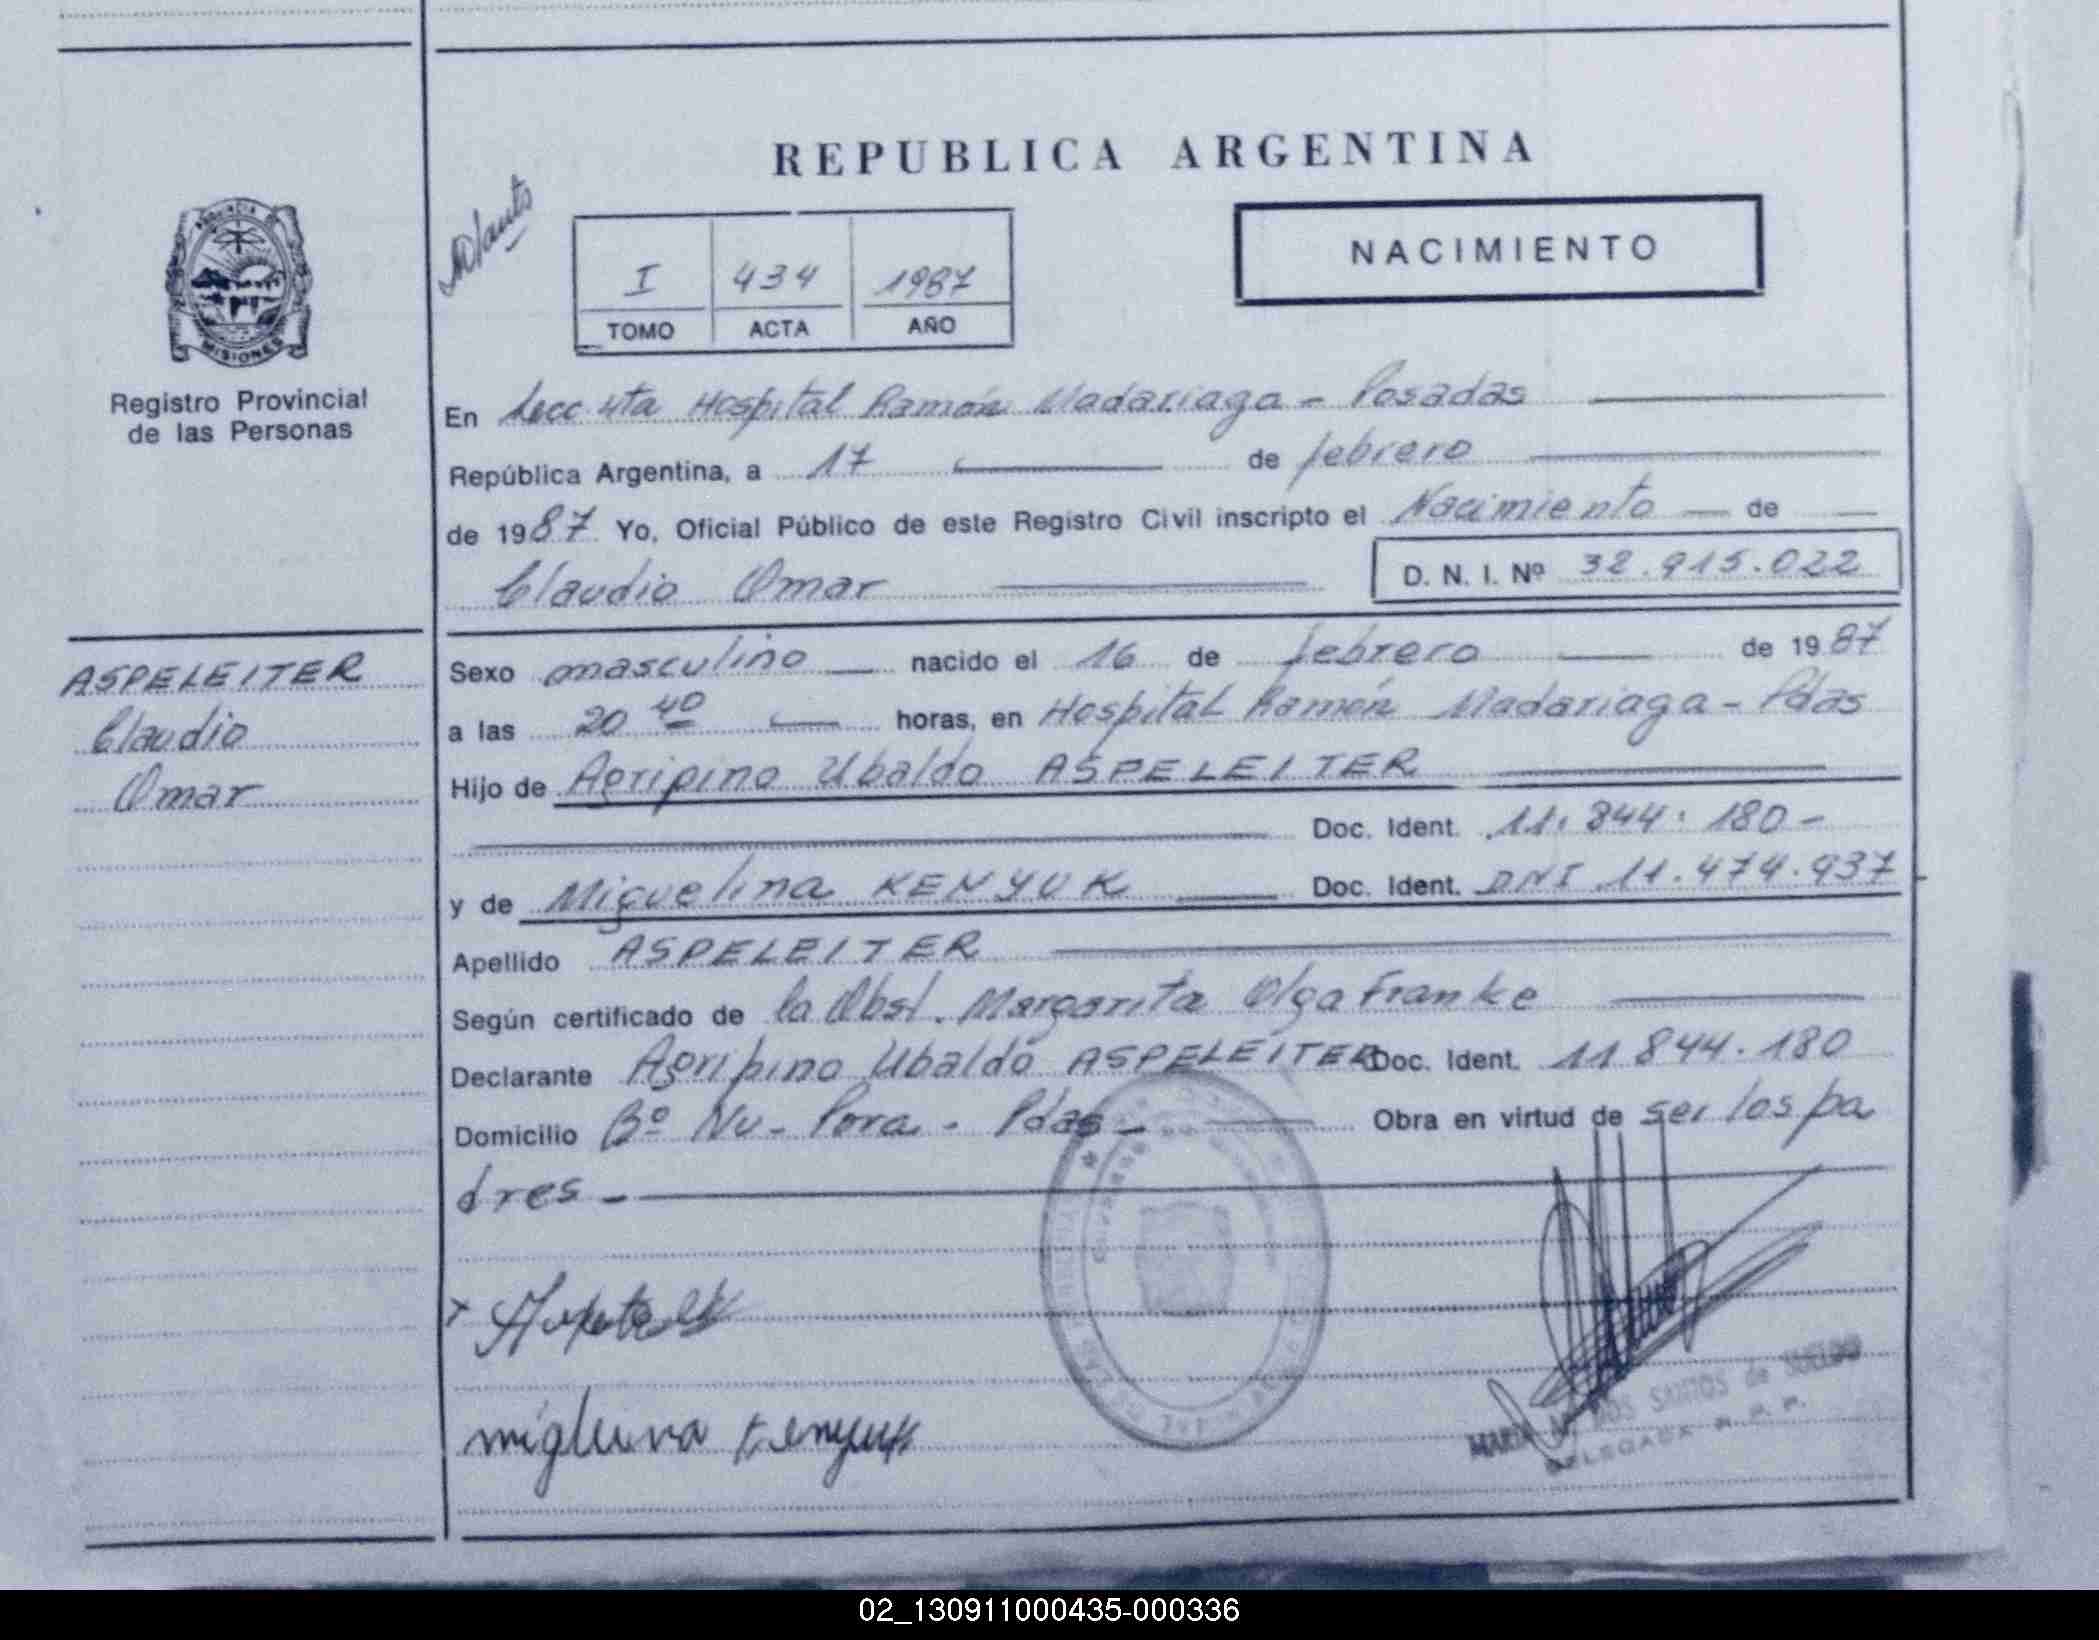 REPUBLICA ARGENTINA
NACIMIENTO
I 434 1987
TOMO ACTA AÑO
PROVINCIA DE
MISIONES
Registro Provincial
de las Personas
En Secc 4ta Hospital Ramón Madariaga - Posadas
República Argentina, a 17 de febrero
de 1987 Yo, Oficial Público de este Registro Civil inscripto el Nacimiento de
Claudio Omar D. N. I. Nº 32.915.022
ASPELEITER
Claudio
Omar
Sexo masculino nacido el 16 de febrero de 1987
a las 20 40 horas, en Hospital Ramón Madariaga - Pdas
Hijo de Agripino Ubaldo ASPELEITER
Doc. Ident. 11.844.180-
y de Miguelina KENYUK Doc. Ident. DNI 11.474.937
Apellido ASPELEITER
Según certificado de la Obst. Margarita Olga Franke
Declarante Agripino Ubaldo ASPELEITER Doc. Ident. 11 844.180
Domicilio Bº Ñu - Pora - Pdas - Obra en virtud de ser los pa
dres -
migluina kenyuk
MARIA A. DOS SANTOS de SUELDO
DELEGADA R. P. P.
02_130911000435-000336